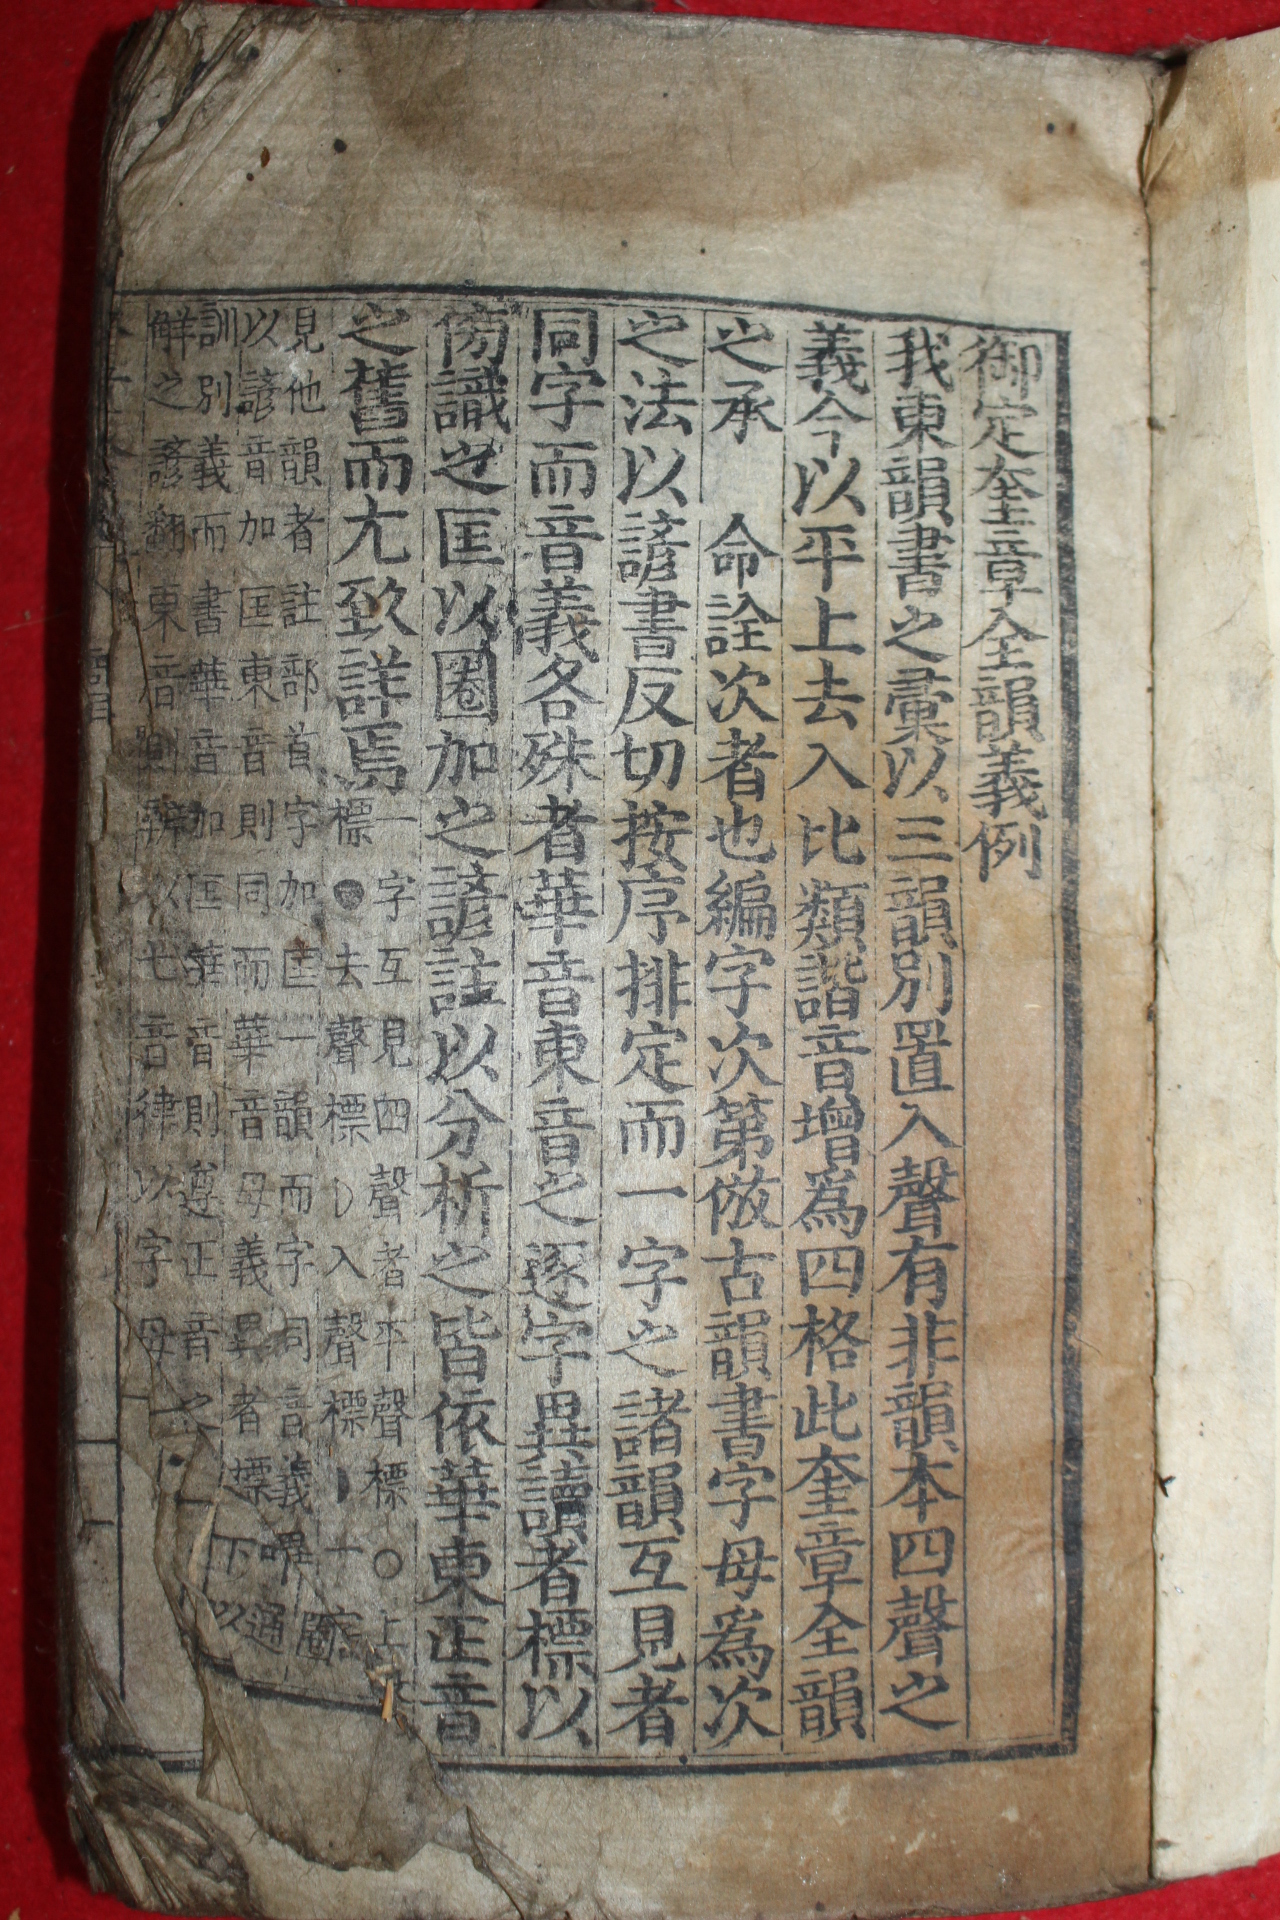 御定奎章全韻義例
我東韻書之彙以三韻別置入聲有非韻本四聲之
義今以平上去入比類諧音增爲四格此奎章全韻
之承 命詮次者也編字次第倣古韻書字母爲次
之法以諺書反切按序排定而一字之諸韻互見者
同字而音義各殊者華音東音之逐字異讀者標以
傍識之匡以圈加之諺註以分析之皆依華東正音
之舊而尤致詳焉
一字互見四聲者平聲標○上
標●去聲標 入聲標 一字
見他韻者註部首字加匡一韻而字同音義異 圈
以諺音加匡東音則同而華音母義異者標 通
訓別義而書華音加匡華音則遵正音之 下
解之諺翻東音則辨以七音律以字母 以